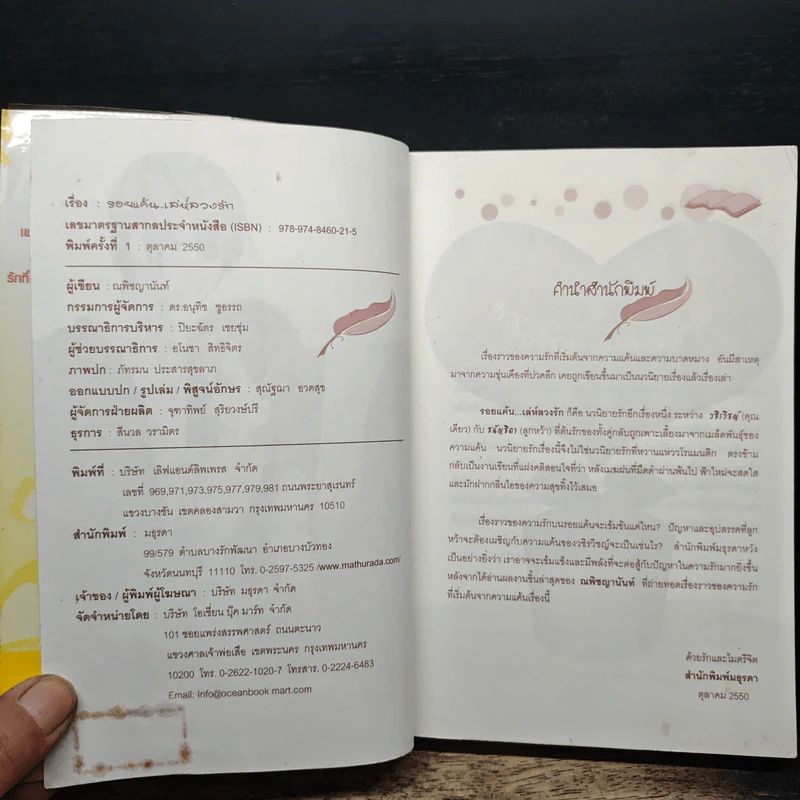 เรื่อง : รอยแค้น...เล่ห์ลวงรัก
เลขมาตรฐานสากลประจำหนังสือ (ISBN) : 978-974-8460-21-5
พิมพ์ครั้งที่ 1 : ตุลาคม 2550
ผู้เขียน : ณพิชญานันท์
กรรมการผู้จัดการ : ดร.อนุทิช ชูอรรถ
บรรณาธิการบริหาร : ปิยะฉัตร เชยชุ่ม
ผู้ช่วยบรรณาธิการ : อโนชา สิทธิจิตร
ภาพปก : ภัทรมน ประสารสุขลาภ
ออกแบบปก / รูปเล่ม / พิสูจน์อักษร : สุณัฐฌา อวดสุข
ผู้จัดการฝ่ายผลิต : จุฑาทิพย์ สุริยวงษ์ปรี
ธุรการ : สีนวล วรามิตร
พิมพ์ที่ : บริษัท เลิฟแอนด์ลิพเพรส จำกัด
เลขที่ 969,971,973,975,977,979,981 ถนนพระยาสุเรนทร์
แขวงบางชัน เขตคลองสามวา กรุงเทพมหานคร 10510
สำนักพิมพ์ : มธุรดา
99/579 ตำบลบางรักพัฒนา อำเภอบางบัวทอง
จังหวัดนนทบุรี 11110 โทร. 0-2597-5325 /www.mathurada.com/
เจ้าของ / ผู้พิมพ์ผู้โฆษณา : บริษัท มธุรดา จำกัด
จัดจำหน่ายโดย : บริษัท โอเชี่ยน บุ๊ค มาร์ท จำกัด
101 ซอยแพร่งสรรพศาสตร์ ถนนตะนาว
แขวงศาลเจ้าพ่อเสือ เขตพระนคร กรุงเทพมหานคร
10200 โทร. 0-2622-1020-7 โทรสาร. 0-2224-6483
Email: Info@oceanbook mart.com
รักที่
คำนำสำนักพิมพ์
เรื่องราวของความรักที่เริ่มต้นจากความแค้นและความบาดหมาง อันมีสาเหตุ
มาจากความขุ่นเคืองที่ปวดลึก เคยถูกเขียนขึ้นมาเป็นนวนิยายเรื่องแล้วเรื่องเล่า
รอยแค้น...เล่ห์ลวงรัก ก็คือ นวนิยายรักอีกเรื่องหนึ่ง ระหว่าง วชิรวิชญ์ (คุณ
เดียว) กับ ชนัญธิดา (ลูกหว้า) ที่ต้นรักของทั้งคู่กลับถูกเพาะเลี้ยงมาจากเมล็ดพันธุ์ของ
ความแค้น นวนิยายรักเรื่องนี้จึงไม่ใช่นวนิยายรักที่หวานแหววโรแมนติก ตรงข้าม
กลับเป็นงานเขียนที่แฝงคติสอนใจที่ว่า หลังเมฆฝนที่มืดดำผ่านพ้นไป ฟ้าใหม่จะสดใส
และมักฝากกลิ่นไอของความสุขทิ้งไว้เสมอ
เรื่องราวของความรักบนรอยแค้นจะเข้มข้นแค่ไหน? ปัญหาและอุปสรรคที่ลูก
หว้าจะต้องเผชิญกับความแค้นของวชิรวิชญ์จะเป็นเช่นไร? สำนักพิมพ์มธุรดาหวัง
เป็นอย่างยิ่งว่า เราอาจจะเข้มแข็งและมีพลังที่จะต่อสู้กับปัญหาในความรักมากยิ่งขึ้น
หลังจากได้อ่านผลงานชิ้นล่าสุดของ ณพิชญานันท์ ที่ถ่ายทอดเรื่องราวของความรัก
ที่เริ่มต้นจากความแค้นเรื่องนี้
ด้วยรักและไมตรีจิต
สำนักพิมพ์มธุรดา
ตุลาคม 2550